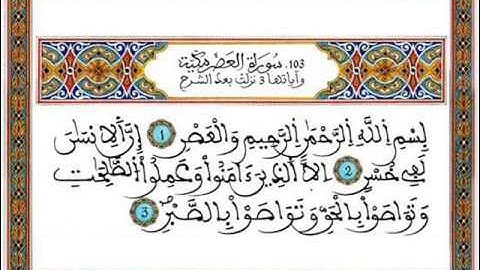 103. سورة العصر مكية
وآياتها 3 نزلت بعد الشرح
بِسْمِ اللَّهِ الرَّحْمَٰنِ الرَّحِيمِ وَالْعَصْرِ 1 إِنَّ الْإِنسَٰنَ
لَفِي خُسْرٍ 2 إِلَّا الَّذِينَ ءَامَنُوا وَعَمِلُوا الصَّٰلِحَٰتِ
وَتَوَاصَوْا بِالْحَقِّ وَتَوَاصَوْا بِالصَّبْرِ 3